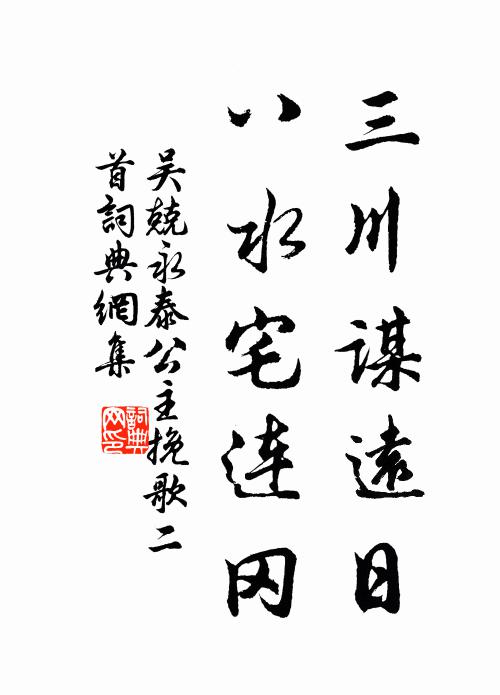 三川謀遠日
八水宅連冈
吴兢永泰公主挽歌二
首詞典網集
詞典网印